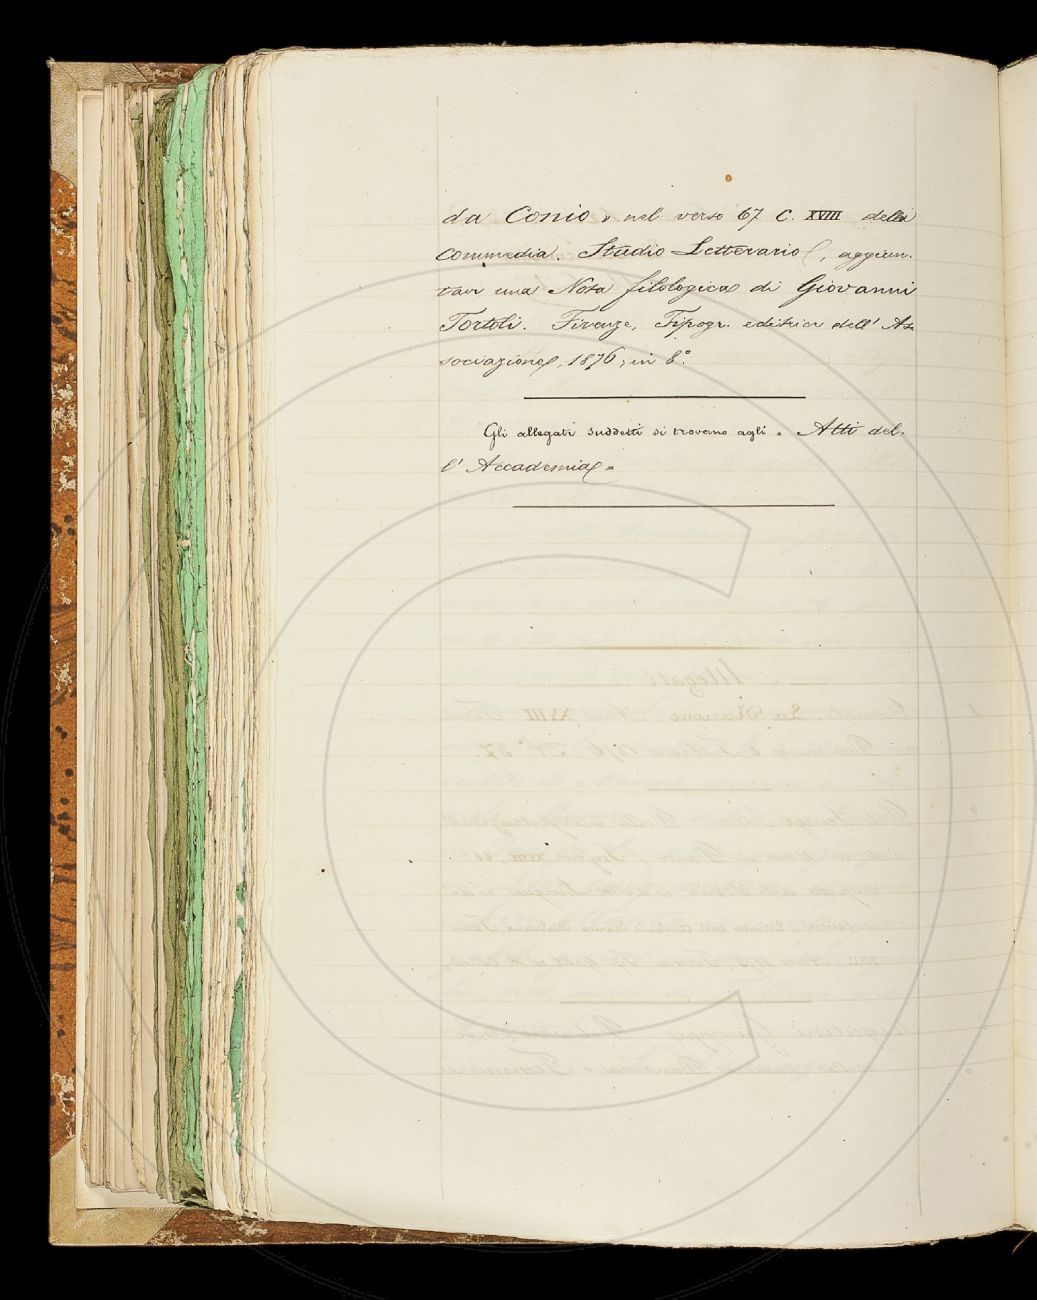 da Conio „ nel verso 67 C. XVIII della
Commedia. Studio Letterario, aggiun-
tavi una Nota filologica di Giovanni
Tortoli. Firenze, Tipogr. editrice dell' As-
sociazione, 1876; in 8.°
Gli allegati suddetti si trovano agli „ Atti del-
l' Accademia „